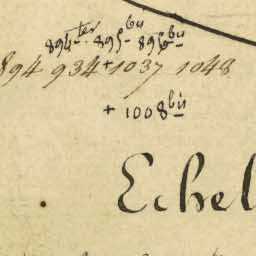 894ter. 895bis 896bis
894 934+1037 1048
+ 1008bis
Echel